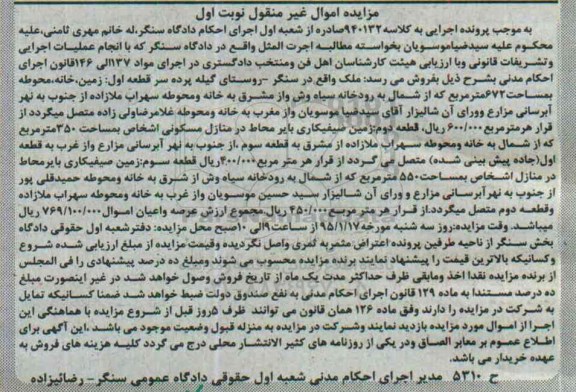 مزایده اموال غیر منقول نوبت اول
به موجب پرونده اجرایی به کلاسه ۹۴۰۱۳۲صادره از شعبه اول اجرای احکام دادگاه سنگر،له خانم مهری ثامنی،علیه
محکوم علیه سیدضیاموسویان بخواسته مطالبه اجرت المثل واقع در دادگاه سنگر که با انجام عملیات اجرایی
وتشریفات قانونی وبا ارزیابی هیئت کارشناسان اهل فن ومنتخب دادگستری در اجرای مواد ۱۳۷الی ۱۴۶قانون اجرای
احکام مدنی بشرح ذیل بفروش می رسد: ملک واقع در سنگر -روستای گیله پرده سر قطعه اول: زمین،خانه،محوطه
بمساحت۶۷۲مترمربع که از شمال به رودخانه سیاه وش واز مشرق به خانه ومحوطه سهراب ملازاده از جنوب به نهر
آبرسانی مزارع وورای آن شالیزار آقای سیدضیا موسویان واز مغرب به خانه ومحوطه غلامرضاولی زاده متصل میگردد از
قرار هرمترمربع۶۰۰/۰۰۰ ریال، قطعه دوم:زمین صیفیکاری بایر محاط در منازل مسکونی اشخاص بمساحت ۳۵۰مترمربع
که از شمال به خانه ومحوطه سهراب ملازاده از مشرق به قطعه سوم ،از جنوب به نهر آبرسانی مزارع واز غرب به قطعه
اول(جاده پیش بینی شده) متصل می گردد از قرار هر متر مربع۴۰۰/۰۰۰ریال قطعه سوم:زمین صیفیکاری بایرمحاط
در منازل اشخاص بمساحت۵۵۰ مترمربع که از شمال به رودخانه سیاه وش از شرق به خانه ومحوطه حمیدقلی پور
از جنوب به نهرآبرسانی مزارع و ورای آن شالیزار سید حسین موسویان واز غرب به خانه ومحوطه سهراب ملازاده
وقطعه دوم متصل میگردد.از قرار هرمتر مربع ۴۵۰/۰۰۰ ریال.مجموع ارزش عرصه واعیان اموال۷۶۹/۱۰۰/۰۰۰ ریال
میباشد. وقت مزایده:روز سه شنبه مورخه۹۵/۱/۱۷ از ساعت۹الی ۱۰صبح محل مزایده: دفترشعبه اول حقوقی دادگاه
بخش سنگر از ناحیه طرفین پرونده اعتراض مثمربه ثمری واصل نگردیده وقیمت مزایده از مبلغ ارزیابی شده شروع
وکسانیکه بالاترین قیمت را پیشنهاد نمایند برنده مزایده محسوب می شوند ومبلغ ده درصد پیشنهادی را فی المجلس
از برنده مزایده نقدا اخذ ومابقی ظرف حداکثر مدت یک ماه از تاریخ فروش وصول خواهد شد.در غیر اینصورت مبلغ
ده درصد مستندا به ماده ۱۲۹ قانون اجرای احکام مدنی به نفع صندوق دولت ضبط خواهد شد.ضمنا کسانیکه تمایل
به شرکت در مزایده را دارند وفق ماده ۱۲۶ همان قانون می توانند ظرف ۵روز قبل از شروع مزایده با هماهنگی این
اجرا از اموال مورد مزایده بازدید نمایند وشرکت در مزایده به منزله قبول وضعیت موجود می باشد.این آگهی برای
اطلاع عموم بر معابر الصاق ودر یکی از روزنامه های کثیر الانتشار محلی درج می گردد کلیه هزینه های فروش به
عهده خریدار می باشد.
ح ۵۳۱۰ مدیر اجرای احکام مدنی شعبه اول حقوقی دادگاه عمومی سنگر- رضائیزاده